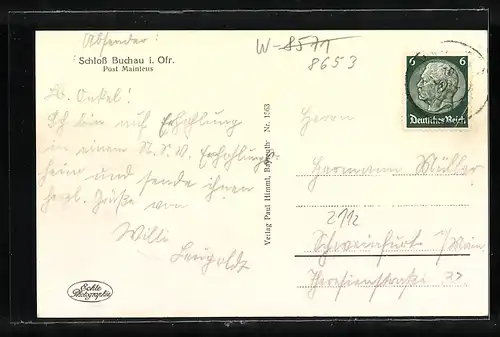 Absender:
Schloß Buchau i. Ofr.
Post Mainleus
Lb. Onkel!
Ich bin auf Erholung
in einem N.S.V. Erholungs-
heim und sende ihnen
herzl. Grüße von
Willi
Leupoldt
Echte
Photographie
Verlag Paul Himml, Bayreuth Nr. 1563
W-8571
8653
6 6
Deutsches Reich
Herrn
Hermann Müller
2112
Schweinfurt a/Main
Theresienstraße 27